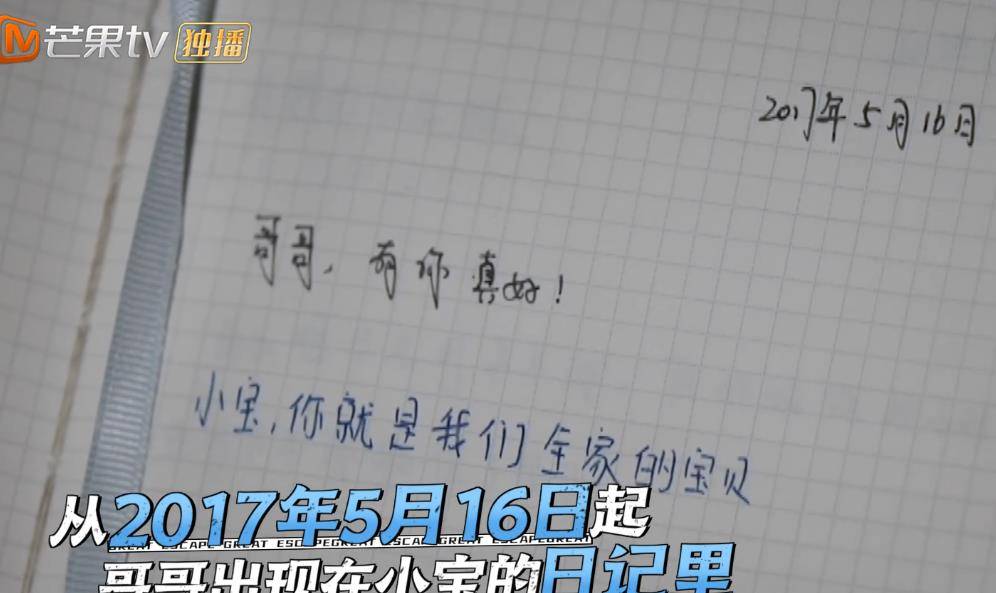 芒果tv 独播
2017年5月16日
哥哥，有你真好！
小宝，你就是我们全家的宝贝
从2017年5月16日起
GREAT ESCAPE GREAT ESCAPE GREAT ESCAPE GREAT ESCAPE GREAT
哥哥出现在小宝的日记里